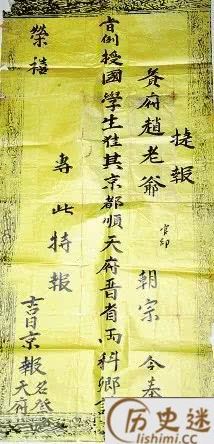 捷報
貴府趙老爺 官印 朝宗 今奉
旨例授國學生在其京都順天府晋省兩科鄉
榮禧
專此特報
吉日京報
天府
历史迷
lishimi.cc